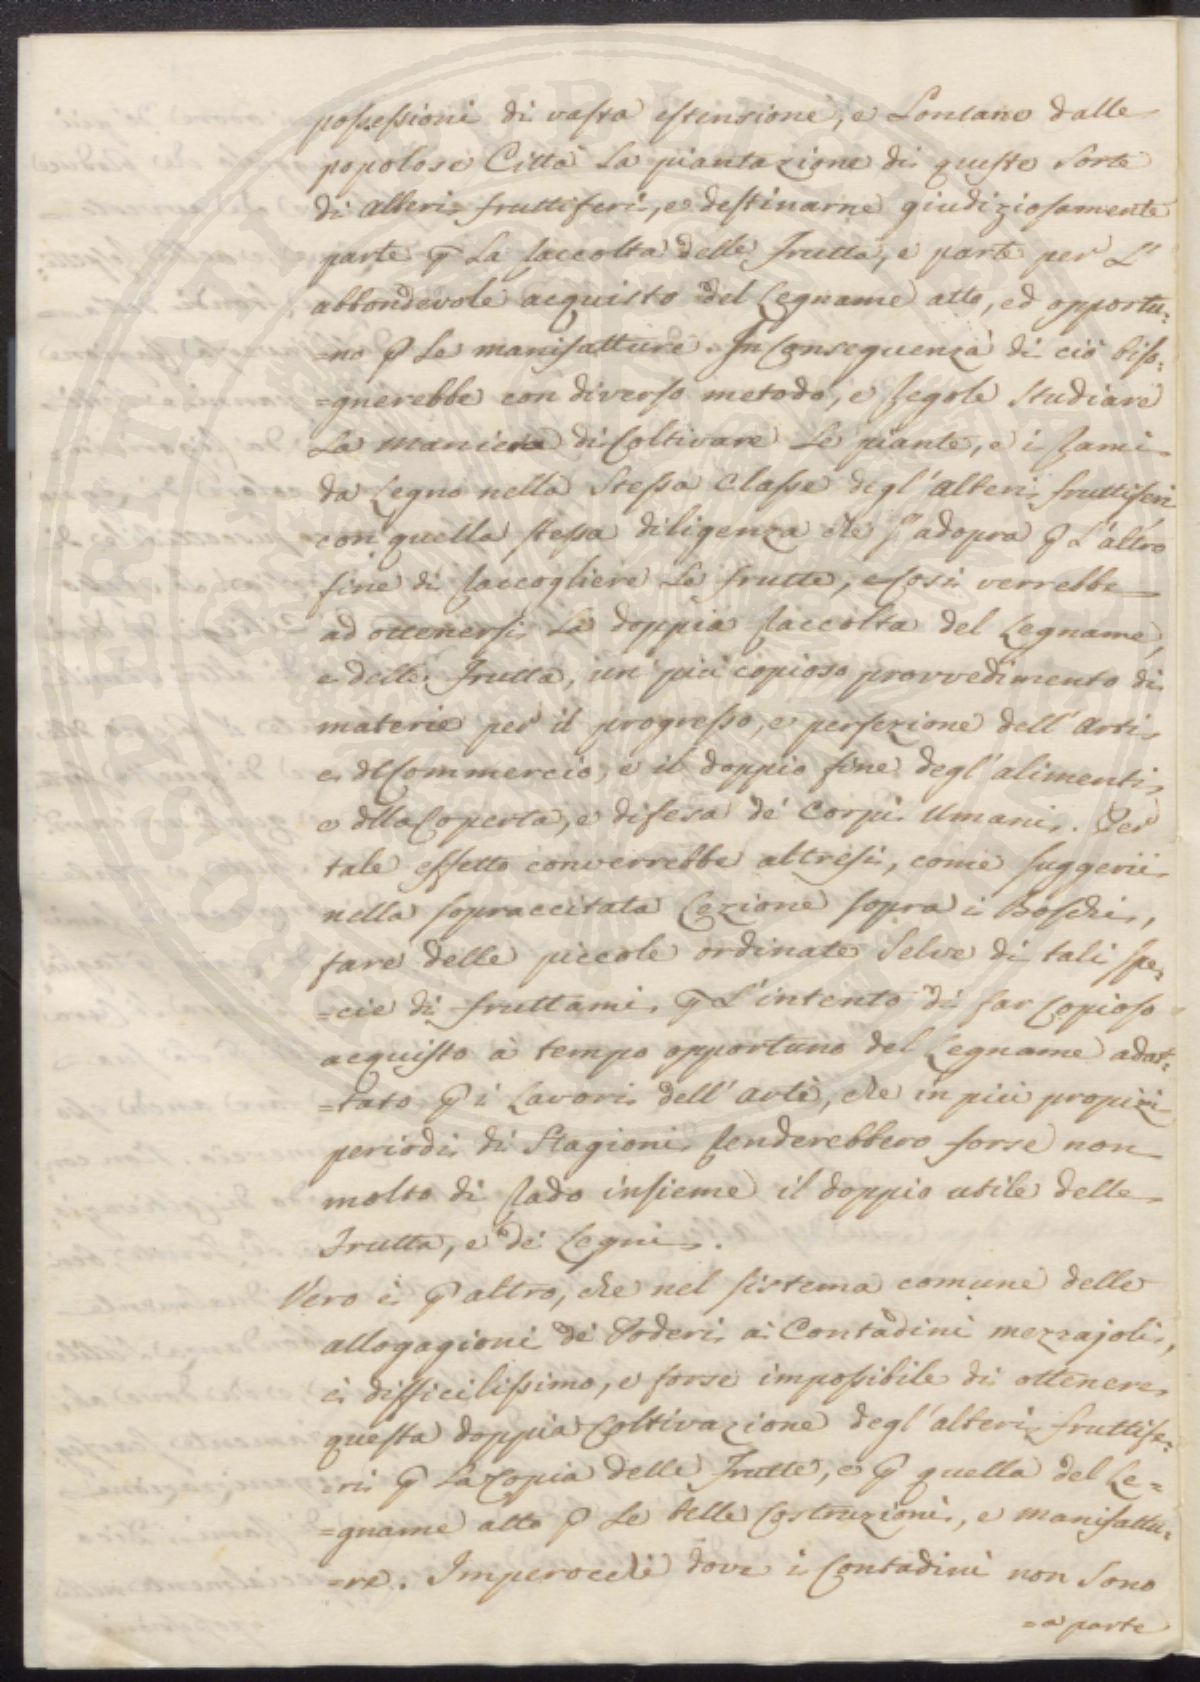 possessioni di vasta estensione, e Lontano dalle
popolose Città La piantazione di queste Sorte
di Alberi fruttiferi, e destinarne giudiziosamente
parte p La Raccolta delle Frutta, e parte per L'
abbondevole acquisto del Legname atto, ed opportu=
=no p Le manifatture. In Conseguenza di ciò biso=
=gnerebbe con diverso metodo, e Regole Studiare
La maniera di Coltivare Le piante, e i Rami
da Legno nella Stessa Classe degl'Alberi fruttiferi
con quella stessa diligenza che s'adopra p L'altro
fine di Raccogliere Le frutte, e Così verrebbe
ad ottenersi La doppia Raccolta del Legname,
e delle Frutta, un più copioso provvedimento di
materie per il progresso, e perfezione dell'Arti
e dl Commercio, e il doppio fine degl'alimenti
e dlla Coperta, e difesa de' Corpi Umani. Per
tale effetto converrebbe altresì, come suggerii
nella sopraccitata Lezione sopra i Boschi,
fare delle piccole ordinate Selve di tali spe=
=cie di fruttami, p L'intento di far Copioso
acquisto a tempo opportuno del Legname adat=
=tato p i Lavori dell'Arte, che in più propizi
periodi di Stagioni Renderebbero forse non
molto di Rado insieme il doppio utile delle
Frutta, e de' Legni.
Vero è p altro, che nel sistema comune delle
allogagioni de' Poderi ai Contadini mezzajoli,
è difficilissimo, e forse impossibile di ottenere
questa doppia Coltivazione degl'Alberi fruttife=
ri p La Copia delle Frutte, e p quella del Le=
=gname atto p Le belle Costruzioni, e manifattu=
=re. Imperocchè dove i Contadini non Sono
=a parte